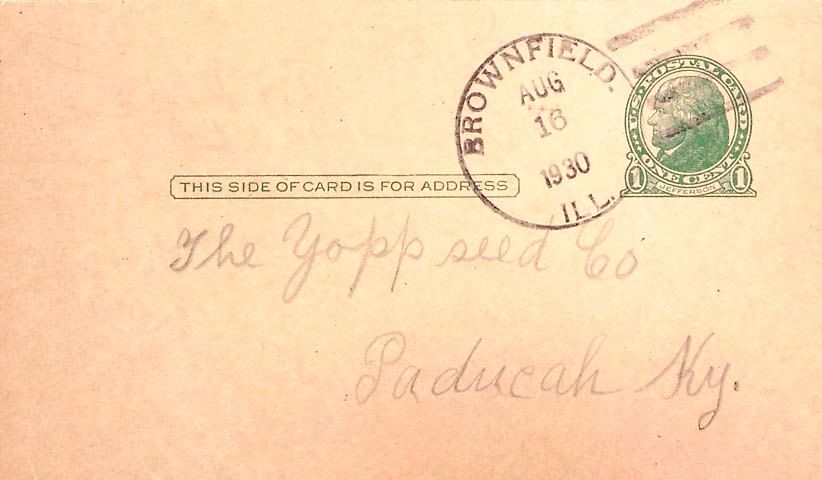 BROWNFIELD.
AUG
16
1930
ILL.
U.S. POSTAL CARD
ONE CENT
1 JEFFERSON 1
THIS SIDE OF CARD IS FOR ADDRESS
The Yopp seed Co
Paducah Ky.